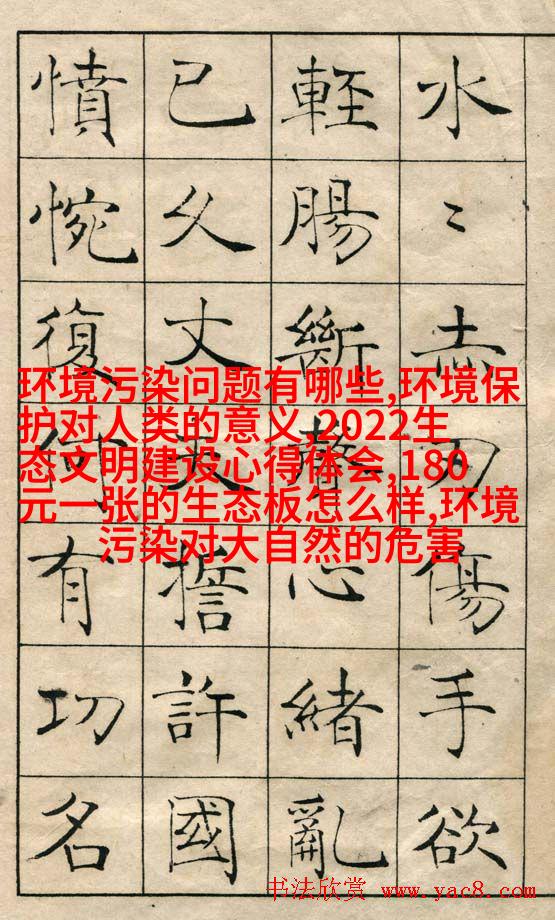 水〻赤刃傷手欲
輕腸斷聲心緒亂
已久丈夫誓許國
憤惋復何有功名
环境污染问题有哪些,环境保
护对人类的意义,2022生
态文明建设心得体会,180
元一张的生态板怎么样,环境
污染对大自然的危害
书法欣赏 www.yac8.com